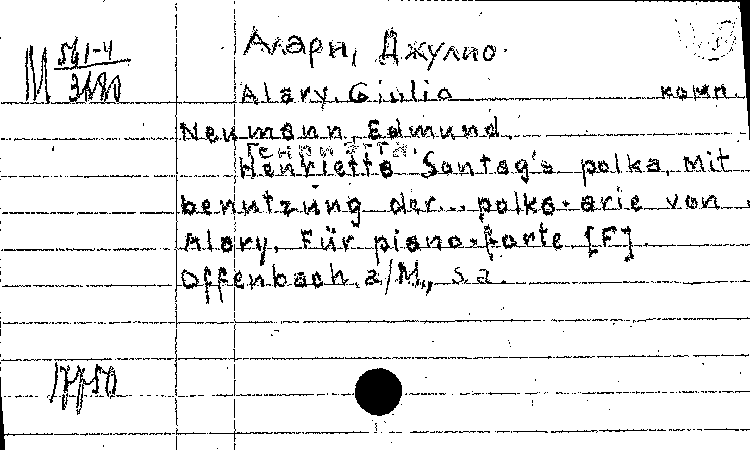 М 561-4
3680
Алари, Джулио.
Alary, Giulio комп.
Neumann, Edmund.
Генриэтта.
Henriette Sontag's polka, mit
benutzung der... polka-arie von
Alary. Für piano-forte [F].
Offenbach a/M., s.a.
17750